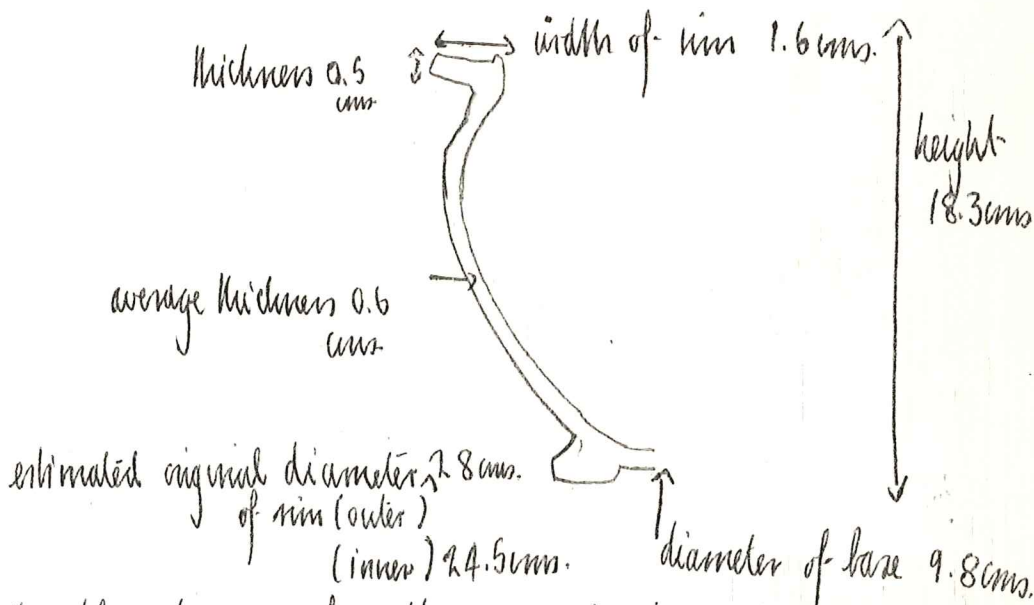 width of rim 1.6 cms.
thickness 0.5
cms
height
18.3 cms
average thickness 0.6
cms
estimated original diameter 28 cms.
of rim (outer)
(inner) 24.5 cms.
diameter of base 9.8 cms.